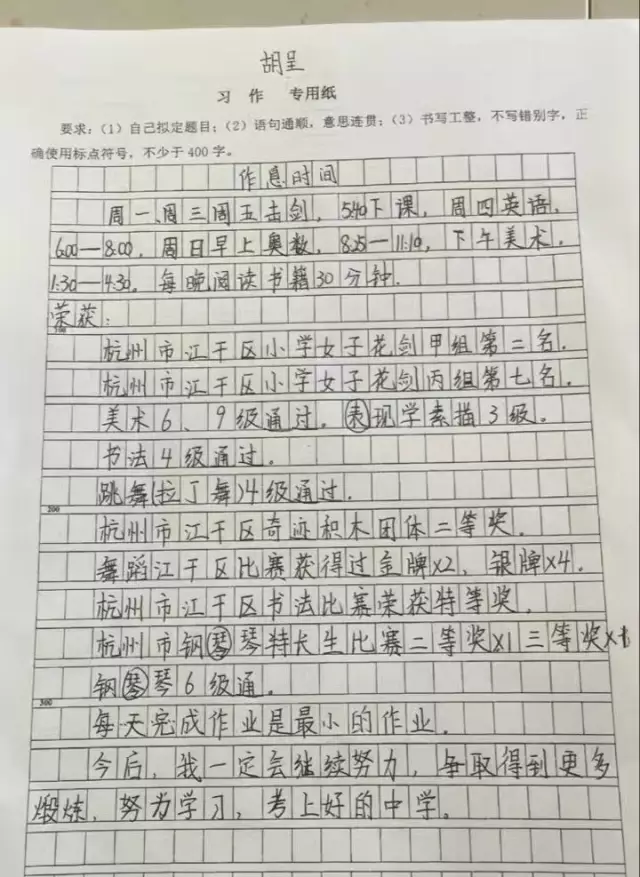 胡呈
习 作 专用纸
要求：（1）自己拟定题目；（2）语句通顺，意思连贯；（3）书写工整，不写错别字，正
确使用标点符号，不少于400字。
作息时间
周一周三周五击剑，5:40下课，周四英语，
6:00—8:00，周日早上奥数，8:25—11:10，下午美术，
1:30—4:30。每晚阅读书籍30分钟。
荣获：
100
杭州市江干区小学女子花剑甲组第二名。
杭州市江干区小学女子花剑丙组第七名。
美术6、9级通过。表现学素描3级。
书法4级通过。
跳舞(拉丁舞)4级通过。
200
杭州市江干区奇迹积木团体二等奖。
舞蹈江干区比赛获得过金牌x2，银牌x4。
杭州市江干区书法比赛荣获特等奖。
杭州市钢琴特长生比赛二等奖x1三等奖x
钢琴6级通。
300
每天完成作业是最小的作业。
今后，我一定会继续努力，争取得到更多
煅炼，努为学习，考上好的中学。